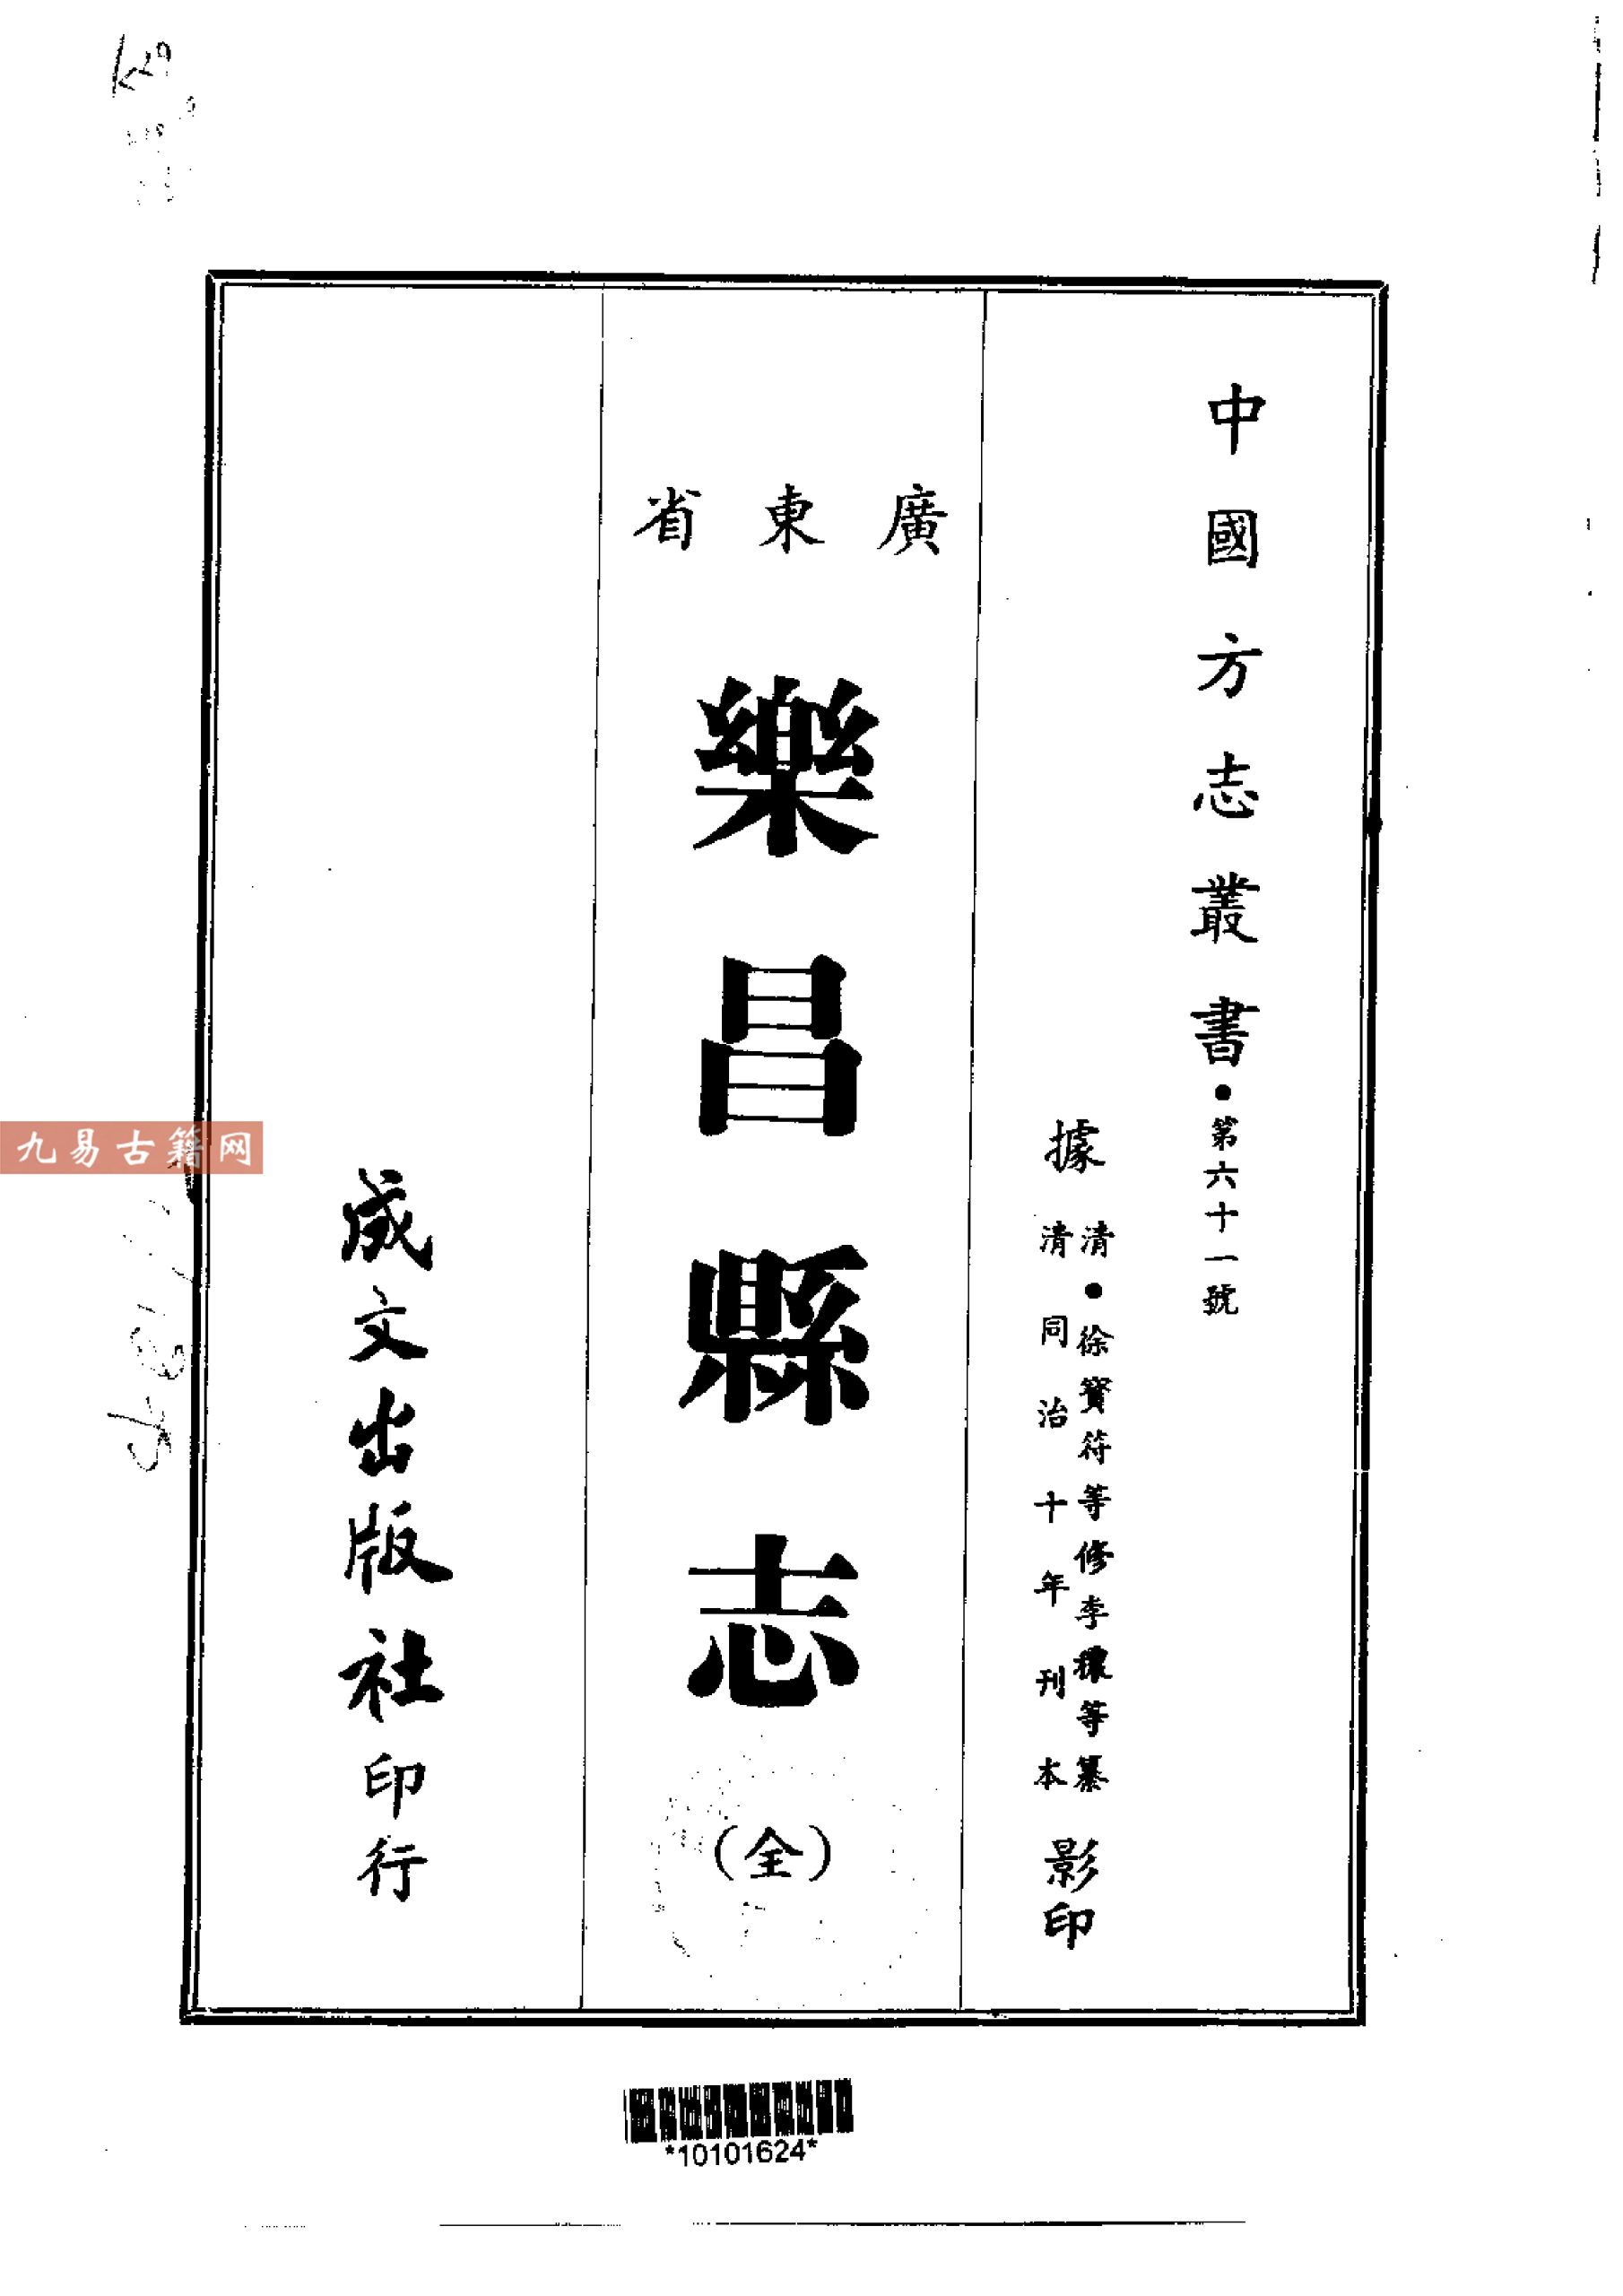 中國方志叢書•第六十一號
據
清•徐寶符等修李穠等纂
清同治十年刊本
影印
廣東省
樂昌縣志
(全)
成文出版社印行
九易古籍网
*10101624*